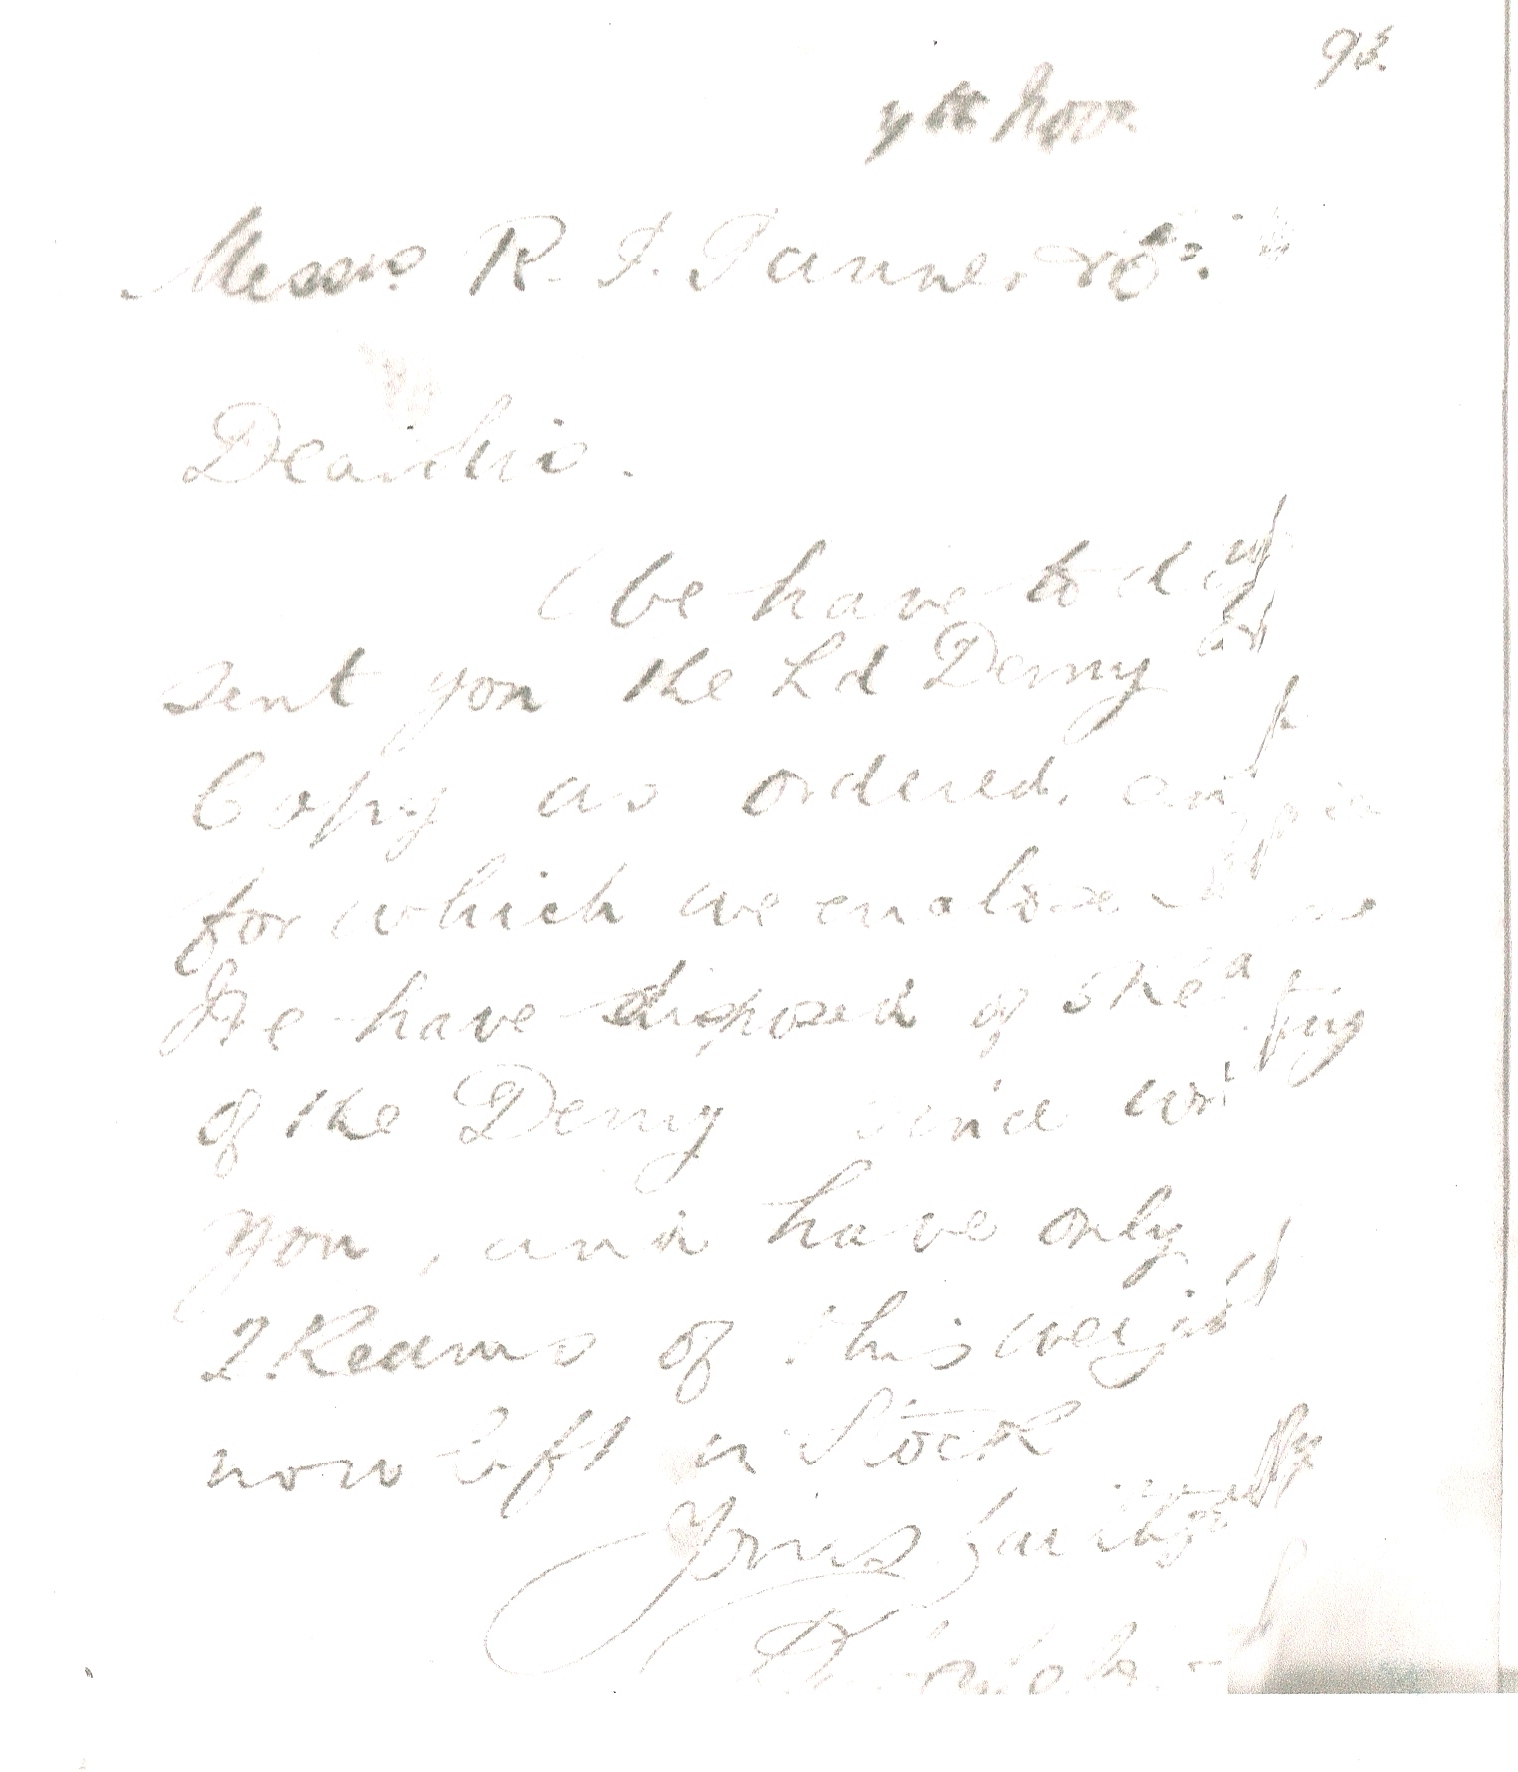 93
7th Novr
Messrs. R. T. Tanner & Co.
Dear Sirs.
We have to day
sent you the Ld Demy
Copy as ordered,
for which we enclose
We have disposed of
of the Demy since writing
you, and have only
2 Reams of this weight
now left in Stock
Yours faithfully